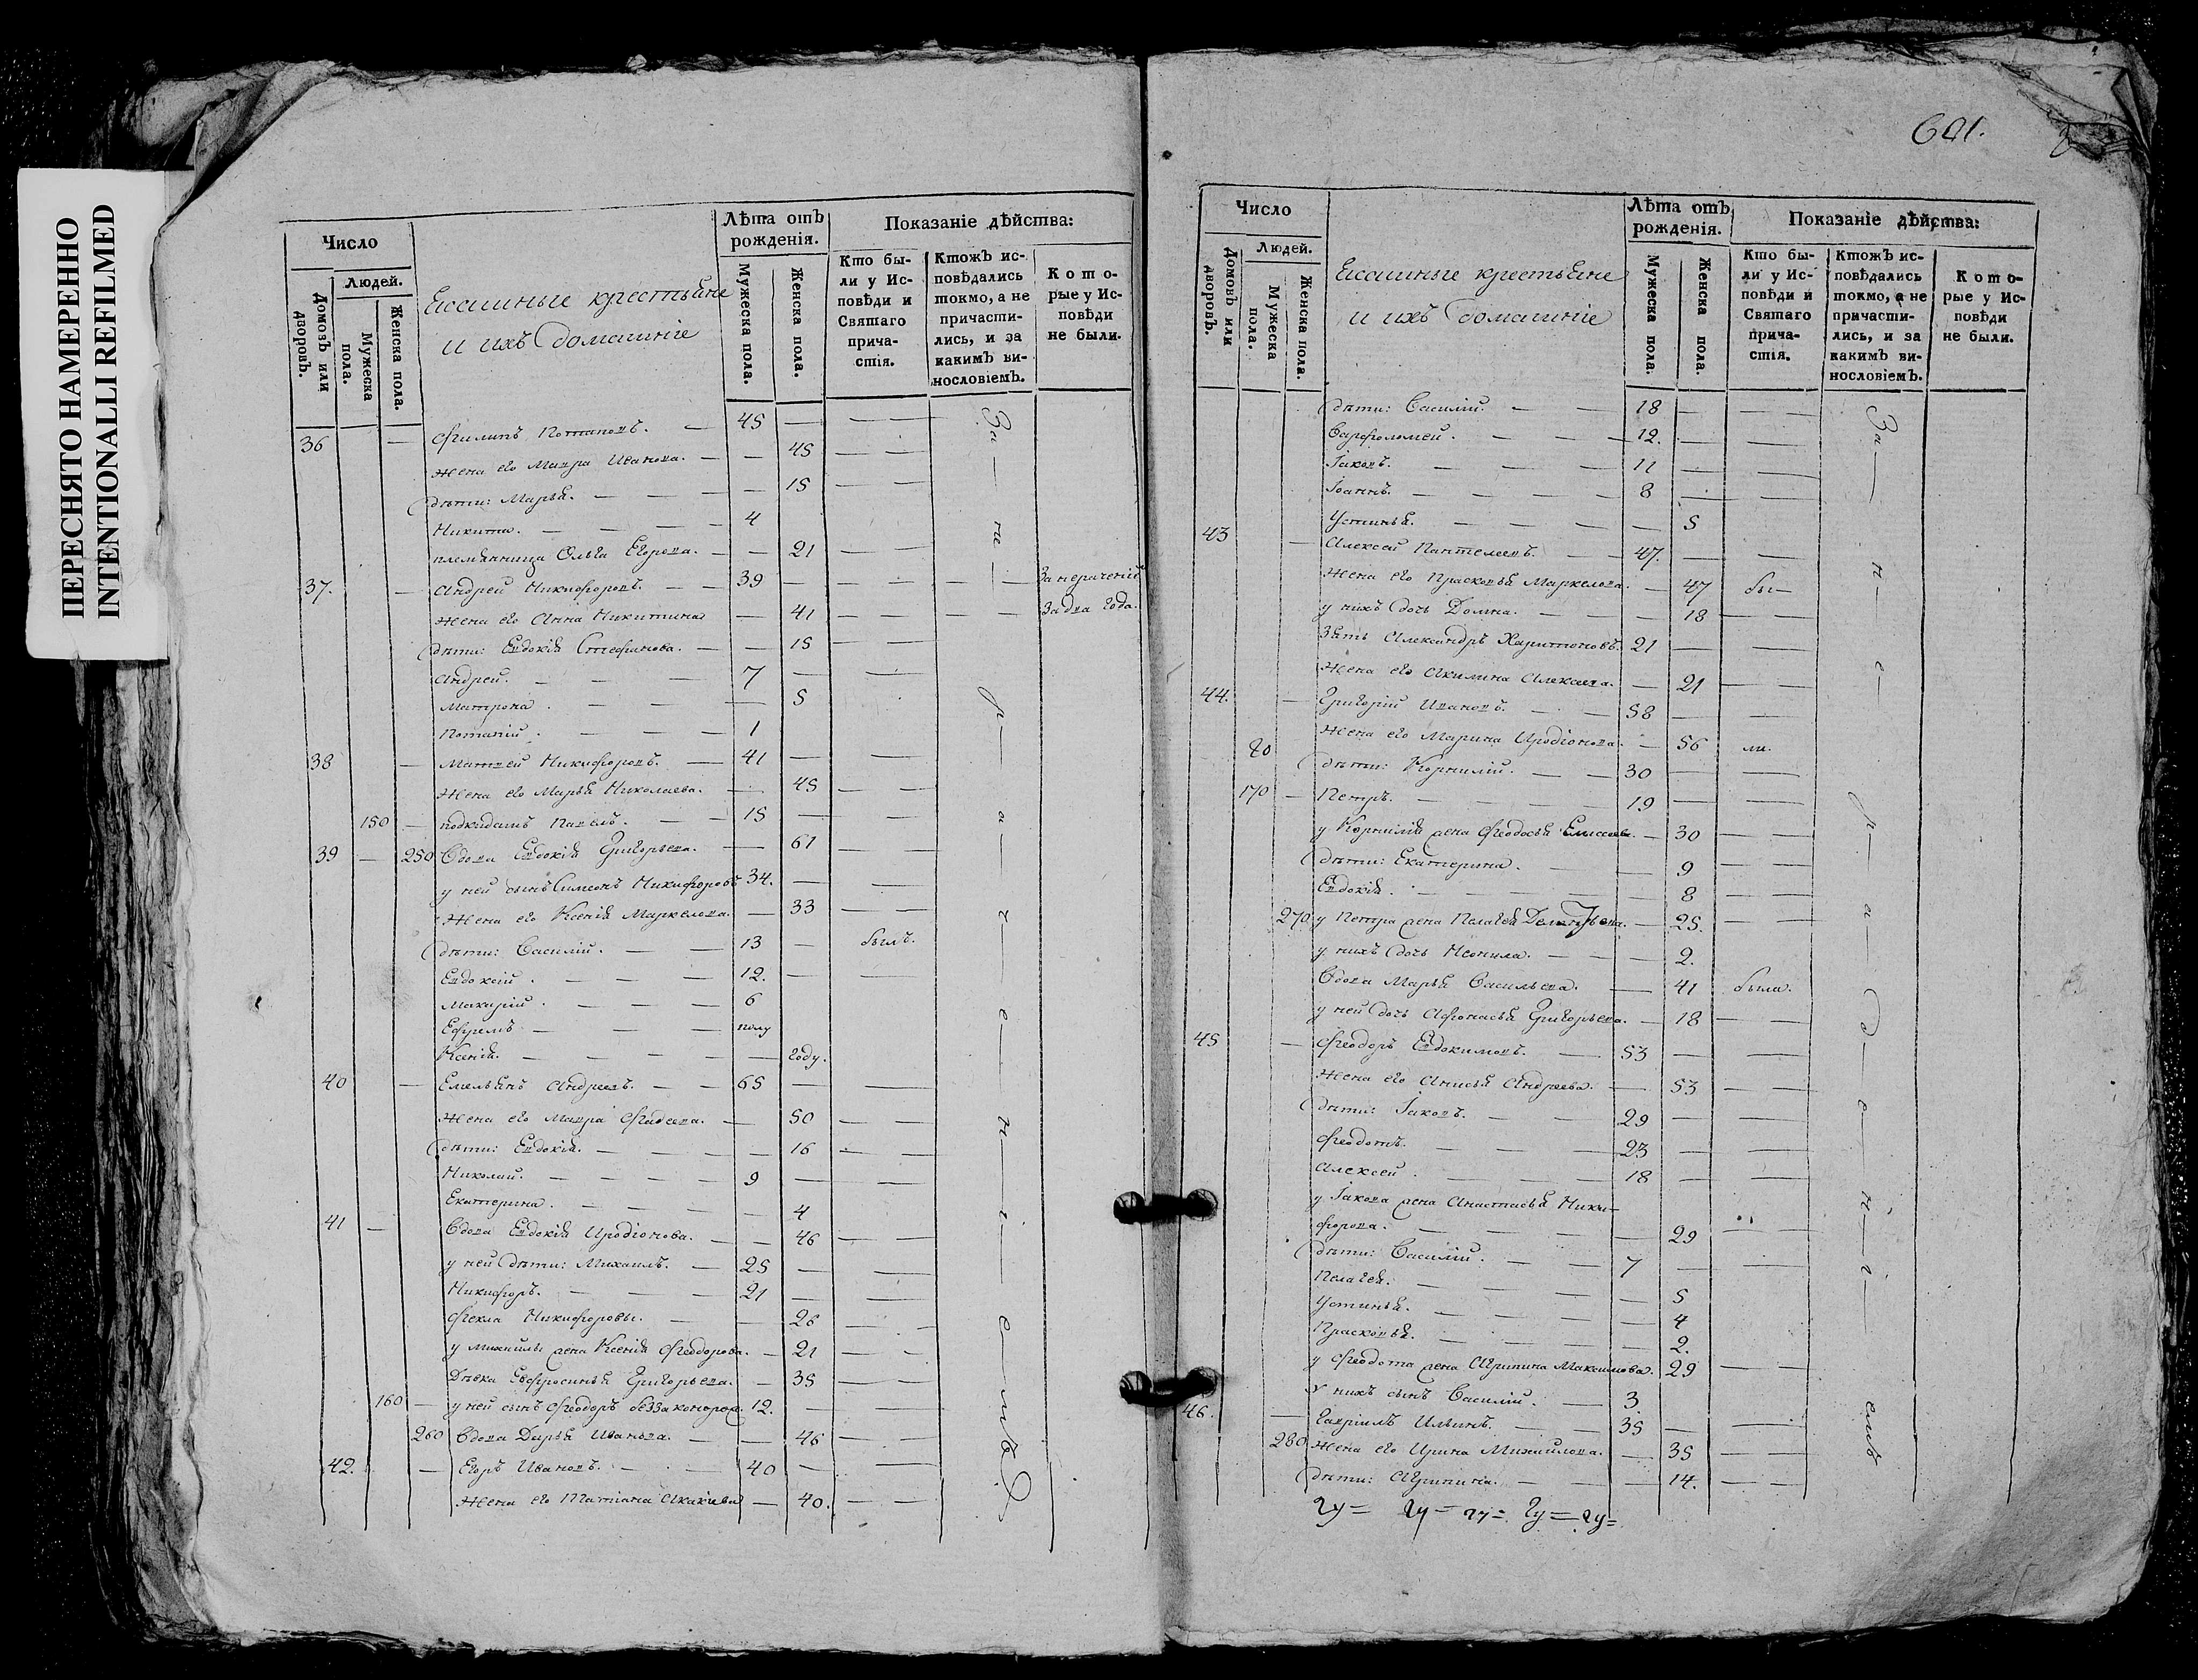 ПЕРЕСНЯТО НАМЕРЕННО
INTENTIONALLI REFILMED
Число
Людей.
Домовъ или дворовъ.
Мужеска пола.
Женска пола.
крестьяне
и ихъ домашніе
Лѣта отъ рожденія.
Мужеска пола.
Женска пола.
Показаніе дѣйства:
Кто бы-
ли у Ис-
повѣди и
Святаго
прича-
стія.
Ктожъ ис-
повѣдались
токмо, а не
причасти-
лись, и за
какимъ ви-
нословіемъ.
Кото-
рые у Ис-
повѣди
не были.
36 — Филипъ Потаповъ. — 45 —
жена его Мавра Иванова. — — 45
дѣти: Марья. — 15
Никита. — 4
племянница Ольга Егорова. — — 21
37. — Андрей Никифоровъ. — 39 — За нераченіемъ
жена его Анна Никитина — 41 за два года.
дѣти: Евдокія Стефанова. — — 15
Андрей. — 7 —
Матрона. — 5
Потапій. — 1
38 — Матвей Никифоровъ. — 41 —
жена его Марья Николаева. — 45
150 — подкидышъ Павелъ. — 15 —
39 — 250 Вдова Евдокія Григорьева. — 61
у ней сынъ Симеонъ Никифоровъ 34. —
жена его Ксенія Маркелова. — 33
дѣти: Василій. — 13 — былъ.
Евдокей. — 12. —
Макарій. — 6
Ефремъ — полу
Ксенія. — году.
40 — Емельянъ Андреевъ. — 65 —
жена его Мавра Фадеева. — 50
дѣти: Евдокія. — 16
Николай. — 9 —
Екатерина. — 4
41 — Вдова Евдокія Иродіонова. — 46
у ней дѣти: Михаилъ. — 25 —
Никифоръ. — 21 —
Фекла Никифоровы. — 26
у Михайлы жена Ксенія Феодорова. — 21
Дѣвка Евфросинья Григорьева. — 35
160 — у ней сынъ Феодоръ беззаконорож. 12. —
260 Вдова Дарья Иванова. — 46
42. — Егоръ Ивановъ. — 40 —
жена его Татіана Акакіева — 40.
За не ра че ні е мъ
Число
Людей.
Домовъ или дворовъ.
Мужеска пола.
Женска пола.
крестьяне
и ихъ домашніе
Лѣта отъ рожденія.
Мужеска пола.
Женска пола.
Показаніе дѣйства:
Кто бы-
ли у Ис-
повѣди и
Святаго
прича-
стія.
Ктожъ ис-
повѣдались
токмо, а не
причасти-
лись, и за
какимъ ви-
нословіемъ.
Кото-
рые у Ис-
повѣди
не были.
дѣти: Василій. — 18 —
Варфоломей. — 12. —
Іаковъ. — 11 —
Іоаннъ. — 8 —
Устинья. — 5
43 — Алексей Пантелеевъ. — 47. —
жена его Прасковья Маркелова. — 47 бы—
у нихъ дочь Домна. — 18
Зять Александръ Харитоновъ. 21 —
жена его Акилина Алексеева. — 21
44. — Григорій Ивановъ. — 58 —
жена его Марина Иродіонова. — 56 ли.
дѣти: Корнилій. — 30 —
170 — Петръ. — 19 —
у Корнилія жена Феодосья Елисеева. — 30
дѣти: Екатерина. — 9
Евдокія. — 8
270 у Петра жена Пелагея Дементьева. — 25.
у нихъ дочь Неонила. — 2.
Вдова Марья Васильева. — 41 была.
у ней дочь Афонасья Григорьева. — 18
45 — Феодоръ Евдокимовъ. — 53 —
жена его Анисья Андреева. — 53
дѣти: Іаковъ. — 29 —
Феодотъ. — 23 —
Алексей. — 18 —
у Іакова жена Анастасья Ники-
форова. — 29
дѣти: Василій. — 7 —
Пелагея. — 5
Устинья. — 4
Прасковья. — 2.
у Феодота жена Агрипина Максимова. 29
у нихъ сынъ Василій. — 3.
46. — Гавріилъ Ильинъ. — 35 —
280 жена его Ирина Михайлова. — 35
дѣти: Агрипина. — 14.